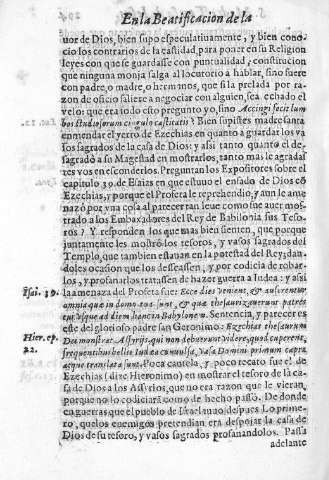 En la Beatificacion de la
uor de Dios, bien supo especulatiuamente, y bien cono-
cio los contrarios de la castidad, para poner en su Religion
leyes con que se guardasse con puntualidad, constitucion
que ninguna monja salga al locutorio a hablar, sino fuere
con padre, o madre, o hermanos, que si la prelada por ra-
zon de oficio saliere a negociar con alguien, sea echado el
velo: que era todo esto pregunto yo, sino Accingi
bos studiosorum cingulo castitatis? Bien supistes madre santa
enmendar el yerro de Ezechias en quanto a guardar los va
sos sagrados de la casa de Dios: y assi tanto quanto el de-
sagradò a su Magestad en mostrarlos, tanto mas le agradas-
tes vos en esconderlos. Preguntan los Expositores sobre el
capitulo 39. de Esaias en que estuuo el enfado de Dios cõ
Ezechias, y porque el Profeta le reprehendio, y aun le ame
nazò por vna cosa al parecer tan leue como fue auer mos-
trado a los Embaxadores del Rey de Babilonia sus Teso-
ros? Y responden los que mas bien sienten, que porque
juntamente les mostrò los tesoros, y vasos sagrados del
Templo, que tambien estauan en la potestad del Rey; dan-
doles ocasion que los desseassen, y por codicia de robar-
los, y profanarlos tratassen de hazer guerra a Iudea: y assi
Isai. 39. la amenaza del Profeta fue: Ecce dies venient, & auferentur
omnia quæ in domo tua sunt, & quæ thesaurizauerunt patres
tui vsque ad diem hanc in Babylonem. Sentencia, y parecer es
este del glorioso padre san Geronimo: Ezechias thesaurum
Hier. ep. Dei monstrat Assyrijs, qui non debuerunt videre, quod cuperent,
22. frequentibus bellis Iudæa conuulsa, vasa Domini primum capta,
atque translata sunt. Poca cautela, y poco recato fue el de
Ezechias (dize Hieronimo) en mostrar el tesoro de la ca-
sa de Dios a los Assirios, que no era razon que le vieran,
porque no lo codiciarà como de hecho passò. De donde
ca guerras que el pueblo de Israel tuuo despues Lo prime-
ro, que los enemigos pretendian era despojar la casa de
Dios de su tesoro, y vasos sagrados profanandolos. Passa
adelante